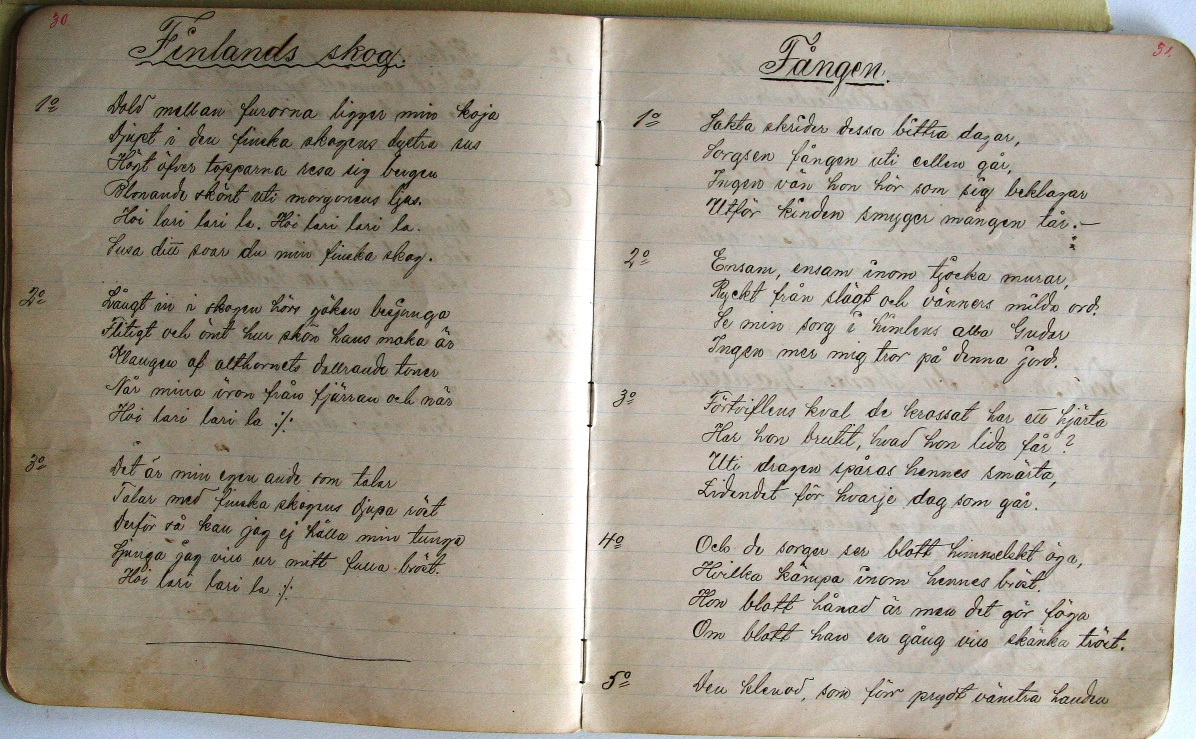 30
Finlands skog.
1o Dold mellan furorna ligger min koja
Djupt i den finska skogens dystra sus
Högt öfver topparna resa sig bergen
Blonande skönt uti morgonens ljus.
Hoi lari lari la. Hoi lari lari la.
Susa ditt svar du min finska skog.
2o Långt in i skogen hörs göken besjunga
Flitigt och ömt hur skön hans maka är
Klangen af althornets dallrande toner
Når mina öron från fjärran och när
Hoi lari lari la :/:
3o Det är min egen ande som talar
Talar med finska skogens djupa röst
Derför så kan jag ej hålla min tunga
Sjunga jag vill ur mitt fulla bröst.
Hoi lari lari la :/:
51.
Fången.
1o Sakta skrider dessa bittra dagar,
Sorgsen fången uti cellen går,
Ingen vän hon hör som sig beklagar
Utför kinden smyger mången tår.–
2o Ensam, ensam inom tjocka murar,
Ryckt från slägt och vänners milda ord.
Se min sorg i himlens alla Gudar
Ingen mer mig tror på denna jord.
3o Förtviflens kval de krossat har ett hjärta
Har hon brutit, hvad hon lida får?
Uti dragen spåras hennes smärta,
Lidandet för hvarje dag som går.
4o Och de sorger ser blott himmelskt öga,
Hvilka kämpa inom hennes bröst.
Hon blott hånad är men det gör föga
Om blott han en gång vill skänka tröst.
5o Den klenod, som förr prydt vänstra handen